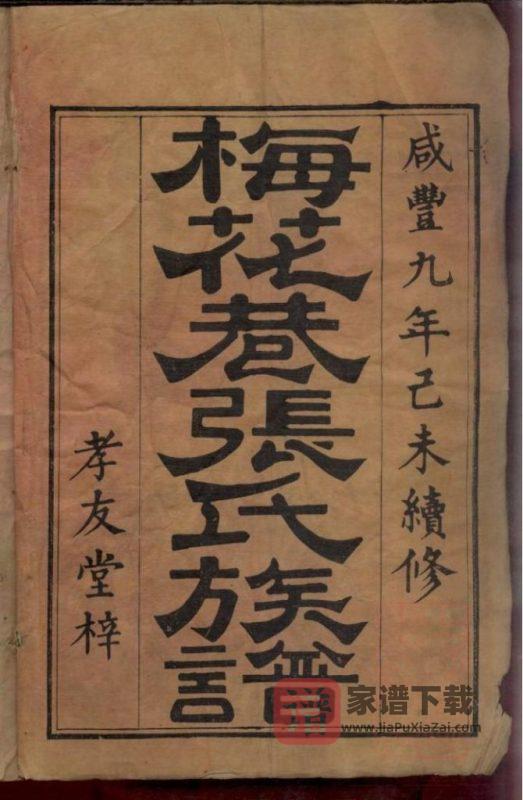 咸豐九年己未續修
梅花巷張氏族譜
孝友堂梓
譜
家谱下载
www.JiaPuXiaZai.com